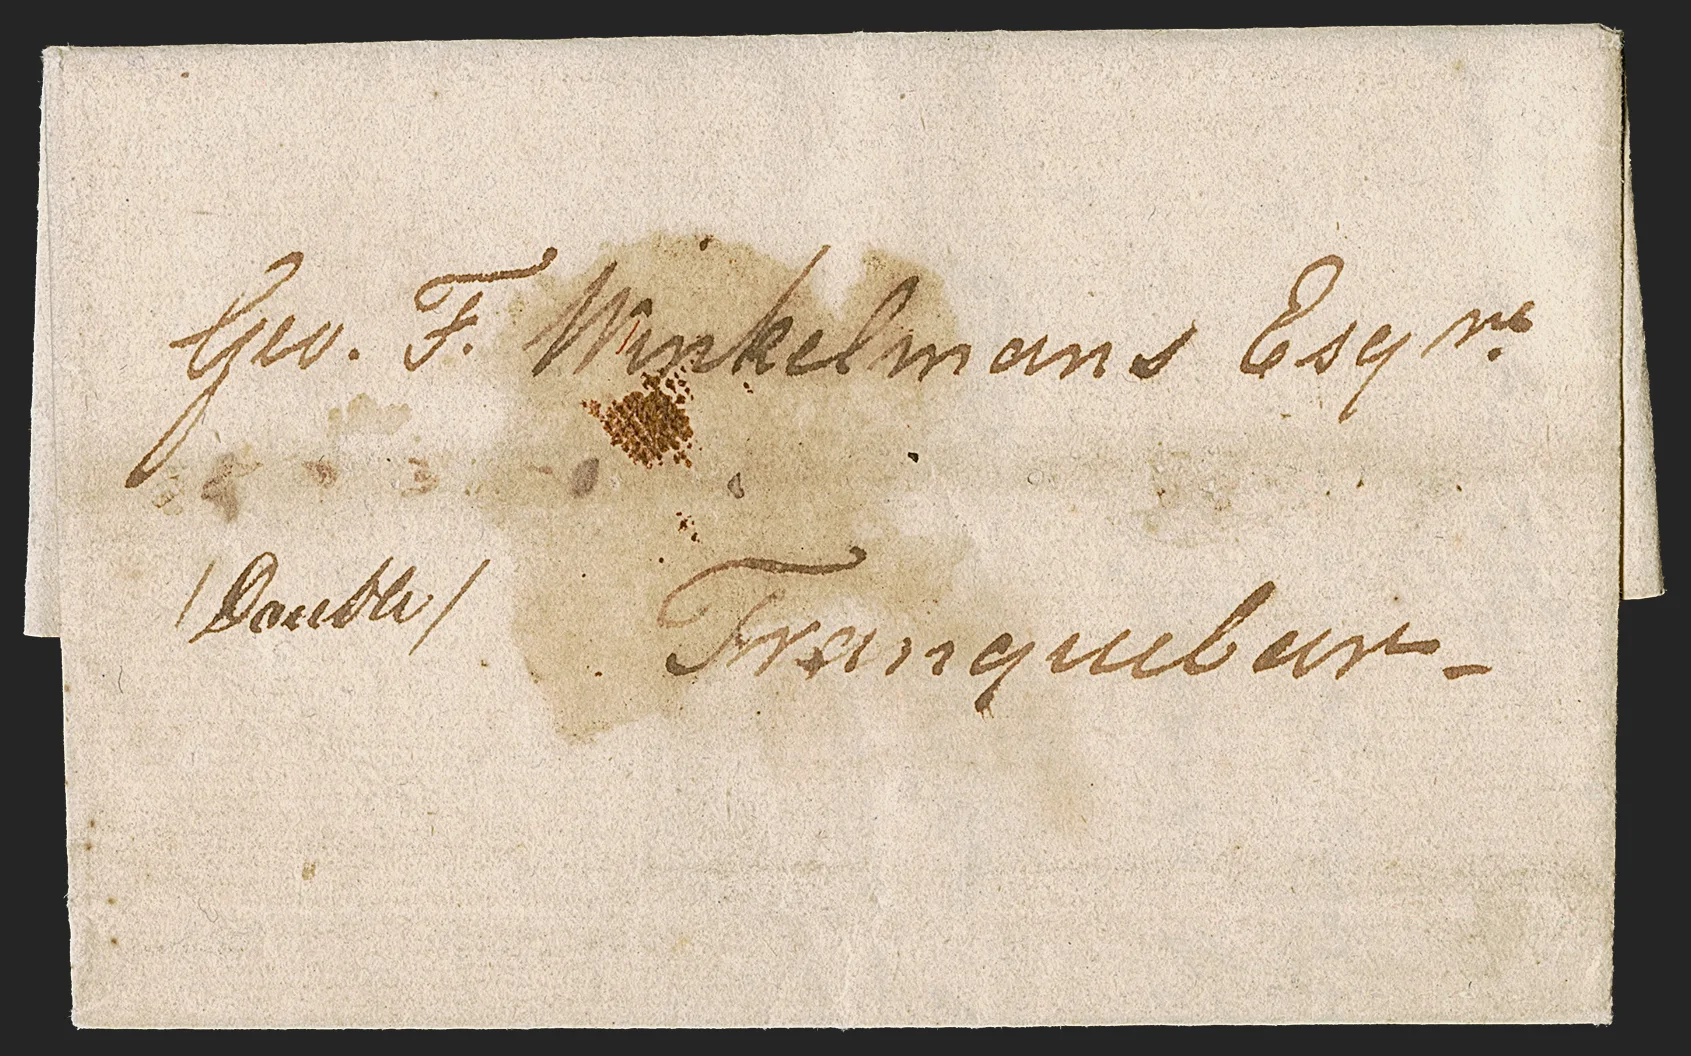 Geo. F. Winkelmans Esqre.
/Double/
Tranquebar -